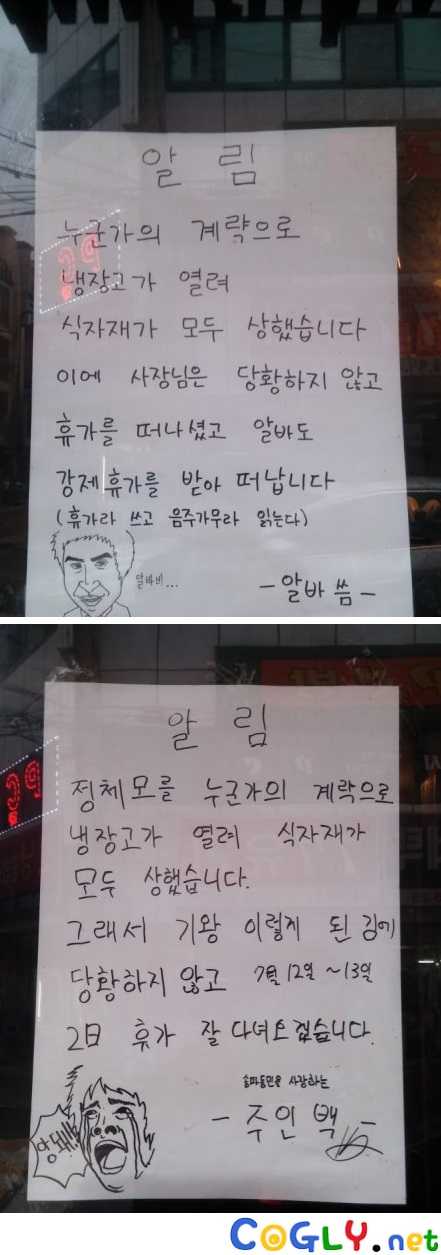 알 림
누군가의 계략으로
냉장고가 열려
식자재가 모두 상했습니다
이에 사장님은 당황하지 않고
휴가를 떠나셨고 알바도
강제휴가를 받아 떠납니다
(휴가라 쓰고 음주가무라 읽는다)
알바비...
-알바 씀-
알 림
정체모를 누군가의 계락으로
냉장고가 열려 식자재가
모두 상했습니다.
그래서 기왕 이렇게 된 김에
당황하지 않고 7월 12일 ~13일
2日 휴가 잘 다녀오겠습니다.
송파동민을 사랑하는
- 주인 백 -
안돼!!!
COGLY.net